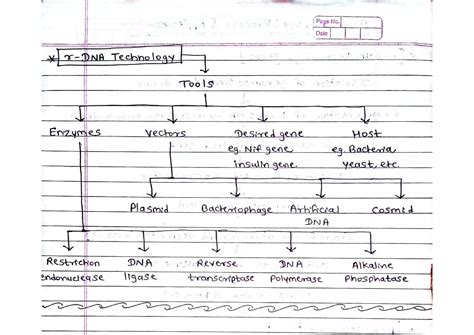 Page No.
Date
* r-DNA Technology
Tools
Enzymes Vectors Desired gene Host
eg. Nif gene eg. Bacteria,
insulin gene. yeast, etc.
Plasmid Bacteriophage Artificial Cosmid
DNA
Restriction DNA Reverse DNA Alkaline
endonuclease ligase transcriptase Polymerase Phosphatase